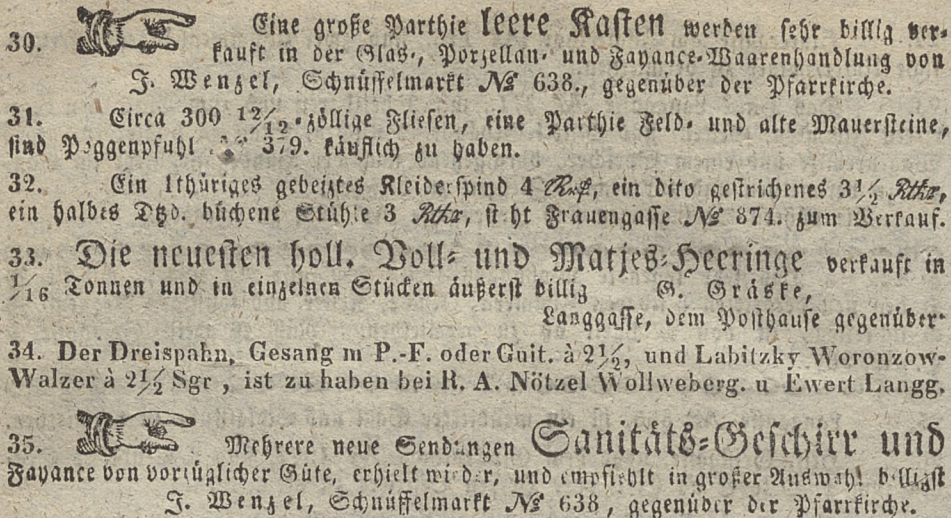 30. Eine große Parthie leere Kasten werden sehr billig ver-
kauft in der Glas-, Porzellan- und Fayance-Waarenhandlung von
J. Wenzel, Schnüffelmarkt № 638., gegenüber der Pfarrkirche.
31. Circa 300 12/12-zöllige Fliesen, eine Parthie Feld- und alte Mauersteine,
sind Poggenpfuhl № 379. käuflich zu haben.
32. Ein 1thüriges gebeiztes Kleiderspind 4 Rthlr, ein dito gestrichenes 3½ Rthlr,
ein halbes Dtzd. büchene Stühle 3 Rthlr, steht Frauengasse № 874. zum Verkauf.
33. Die neuesten holl. Voll- und Matjes-Heeringe verkauft in
1/16 Tonnen und in einzelnen Stücken äußerst billig G. Gräske,
Langgasse, dem Posthause gegenüber.
34. Der Dreispahn, Gesang m P.-F. oder Guit. à 2½, und Labitzky Woronzow-
Walzer à 2½ Sgr , ist zu haben bei R. A. Nötzel Wollweberg. u Ewert Langg.
35. Mehrere neue Sendungen Sanitäts-Geschirr und
Fayance von vorzüglicher Güte, erhielt wieder, und empfiehlt in großer Auswahl billigst
J. Wenzel, Schnüffelmarkt № 638, gegenüber der Pfarrkirche.